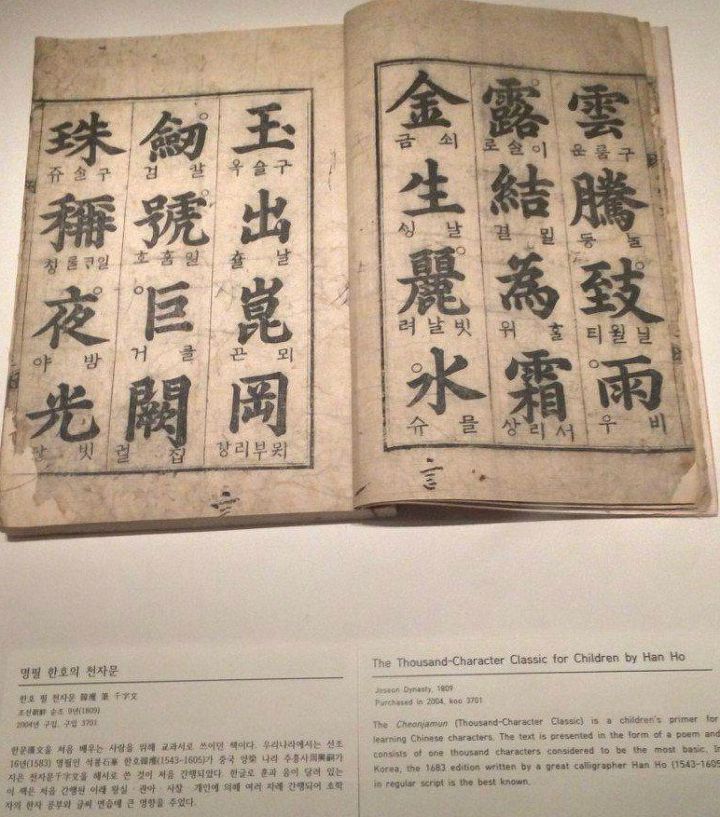 雲 구룸 운
騰 등
致 닐월 티
雨 비 우
露 이슬 로
結 결
為 홀 위
霜 서리 상
金 쇠 금
生 날 싱
麗 빗날 려
水 믈 슈
玉 구슬
出 날 츌
崑 뫼 곤
岡 묏부리 강
劒 칼 검
號 일홈 호
巨 클 거
闕 집 궐
珠 구슬 쥬
稱 칭
夜 밤 야
光 빗
명필 한호의 천자문
한호 필 천자문 韓濩 筆 千字文
조선朝鮮 순조 9년(1809)
2004년 구입, 구입 3701
한문漢文을 처음 배우는 사람을 위해 교과서로 쓰이던 책이다. 우리나라에서는 선조
16년(1583) 명필인 석봉石峯 한호韓濩(1543-1605)가 중국 양梁 나라 주흥사周興嗣가
지은 천자문千字文을 해서로 쓴 것이 처음 간행되었다. 한글로 훈과 음이 달려 있는
이 책은 처음 간행된 이래 왕실 · 관아 · 사찰 · 개인에 의해 여러 차례 간행되어 초학
자의 한자 공부와 글씨 연습에 큰 영향을 주었다.
The Thousand-Character Classic for Children by Han Ho
Joseon Dynasty, 1809
Purchased in 2004, koo 3701
The Cheonjamun (Thousand-Character Classic) is a children's primer for
learning Chinese characters. The text is presented in the form of a poem and
consists of one thousand characters considered to be the most basic. In
Korea, the 1683 edition written by a great calligrapher Han Ho (1543-1605
in regular script is the best known.